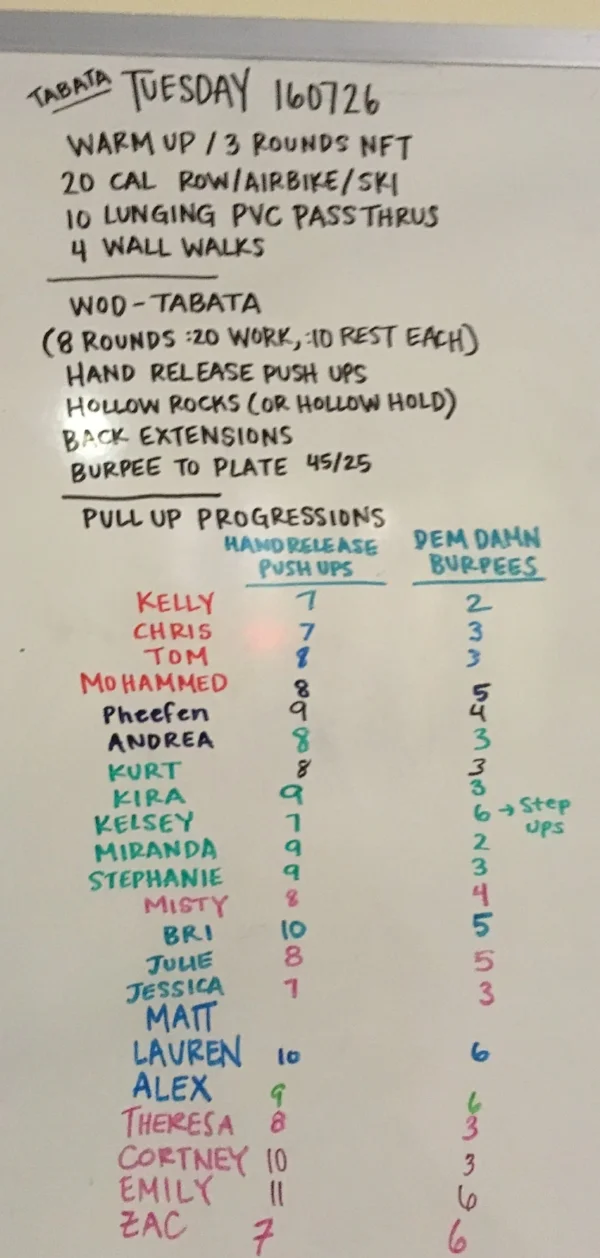 TABATA TUESDAY 160726
WARM UP / 3 ROUNDS NFT
20 CAL ROW/AIRBIKE/SKI
10 LUNGING PVC PASSTHRUS
4 WALL WALKS
WOD - TABATA
(8 ROUNDS :20 WORK, :10 REST EACH)
HAND RELEASE PUSH UPS
HOLLOW ROCKS (OR HOLLOW HOLD)
BACK EXTENSIONS
BURPEE TO PLATE 45/25
PULL UP PROGRESSIONS
HAND RELEASE DEM DAMN
PUSH UPS BURPEES
KELLY 7 2
CHRIS 7 3
TOM 8 3
MOHAMMED 8 5
Pheefen 9 4
ANDREA 8 3
KURT 8 3
KIRA 9 3
KELSEY 7 6 → Step
ups
MIRANDA 9 2
STEPHANIE 9 3
MISTY 8 4
BRI 10 5
JULIE 8 5
JESSICA 7 3
MATT
LAUREN 10 6
ALEX 9 6
THERESA 8 3
CORTNEY 10 3
EMILY 11 6
ZAC 7 6